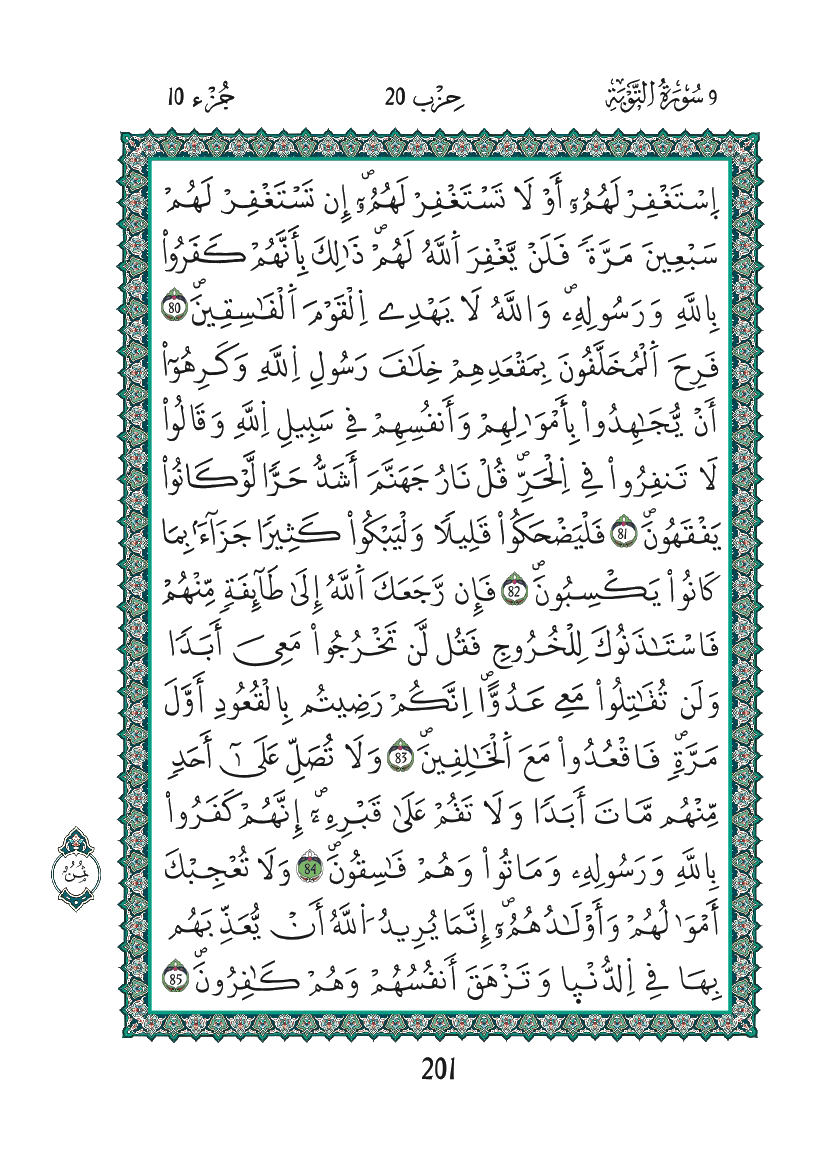 9 سُورَةُ التَّوْبَةِ
حِزْب 20
جُزْء 10
اِ۪سْتَغْفِرْ لَهُمُۥٓ أَوْ لَا تَسْتَغْفِرْ لَهُمُۥٓۖ إِن تَسْتَغْفِرْ لَهُمْ
سَبْعِينَ مَرَّةٗ فَلَنْ يَّغْفِرَ اَ۬للَّهُ لَهُمْۖ ذَٰلِكَ بِأَنَّهُمْ كَفَرُواْ
بِاللَّهِ وَرَسُولِهِۦۖ وَاللَّهُ لَا يَهْدِے اِ۬لْقَوْمَ اَ۬لْفَٰسِقِينَۖ 80
فَرِحَ اَ۬لْمُخَلَّفُونَ بِمَقْعَدِهِمْ خِلَٰفَ رَسُولِ اِ۬للَّهِ وَكَرِهُوٓاْ
أَنْ يُّجَٰهِدُواْ بِأَمْوَٰلِهِمْ وَأَنفُسِهِمْ فِے سَبِيلِ اِ۬للَّهِ وَقَالُواْ
لَا تَنفِرُواْ فِے اِ۬لْحَرِّۖ قُلْ نَارُ جَهَنَّمَ أَشَدُّ حَرّٗا لَّوْ كَانُواْ
يَفْقَهُونَۖ 81 فَلْيَضْحَكُواْ قَلِيلٗا وَلْيَبْكُواْ كَثِيرٗا جَزَآءَۢ بِمَا
كَانُواْ يَكْسِبُونَۖ 82 فَإِن رَّجَعَكَ اَ۬للَّهُ إِلَىٰ طَآئِفَةٖ مِّنْهُمْ
فَاسْتَـٰٔذَنُوكَ لِلْخُرُوجِ فَقُل لَّن تَخْرُجُواْ مَعِيَ أَبَدٗا
وَلَن تُقَٰتِلُواْ مَعِے عَدُوّاًۖ اِنَّكُمْ رَضِيتُم بِالْقُعُودِ أَوَّلَ
مَرَّةٖۖ فَاقْعُدُواْ مَعَ اَ۬لْخَٰلِفِينَۖ 83 وَلَا تُصَلِّ عَلَىٰٓ أَحَدٖ
مِّنْهُم مَّاتَ أَبَدٗا وَلَا تَقُمْ عَلَىٰ قَبْرِهِۦٓۖ إِنَّهُمْ كَفَرُواْ
بِاللَّهِ وَرَسُولِهِۦ وَمَاتُواْ وَهُمْ فَٰسِقُونَۖ 84 وَلَا تُعْجِبْكَ
أَمْوَٰلُهُمْ وَأَوْلَٰدُهُمُۥٓۖ إِنَّمَا يُرِيدُ اَ۬للَّهُ أَنْ يُّعَذِّبَهُم
بِهَا فِے اِ۬لدُّنْيَا وَتَزْهَقَ أَنفُسُهُمْ وَهُمْ كَٰفِرُونَۖ 85
ثُمُنُ
201